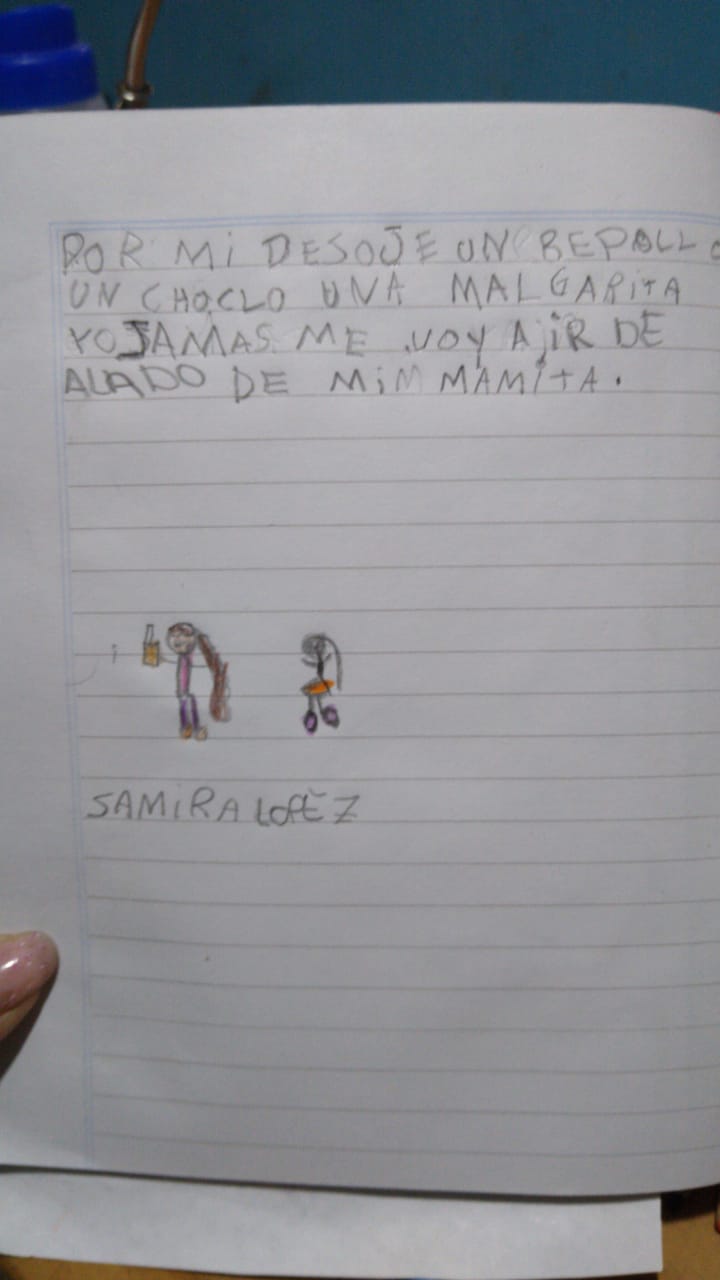 POR MI DESOJE UN REPOLLO
UN CHOCLO UNA MALGARITA
YO JAMAS ME VOY A IR DE
ALADO DE MIM MAMITA.
SAMIRA LOPEZ